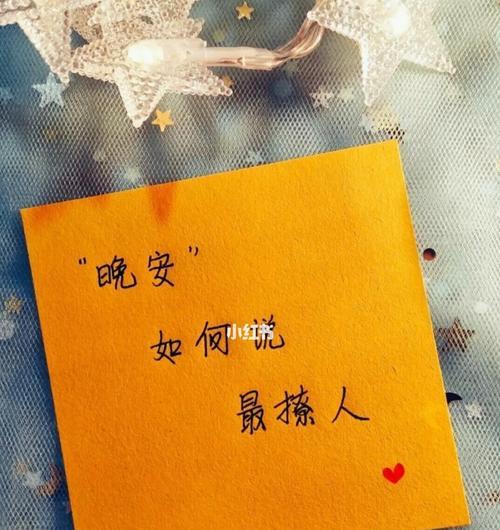 “晚安”
如何说
小红书
最撩人